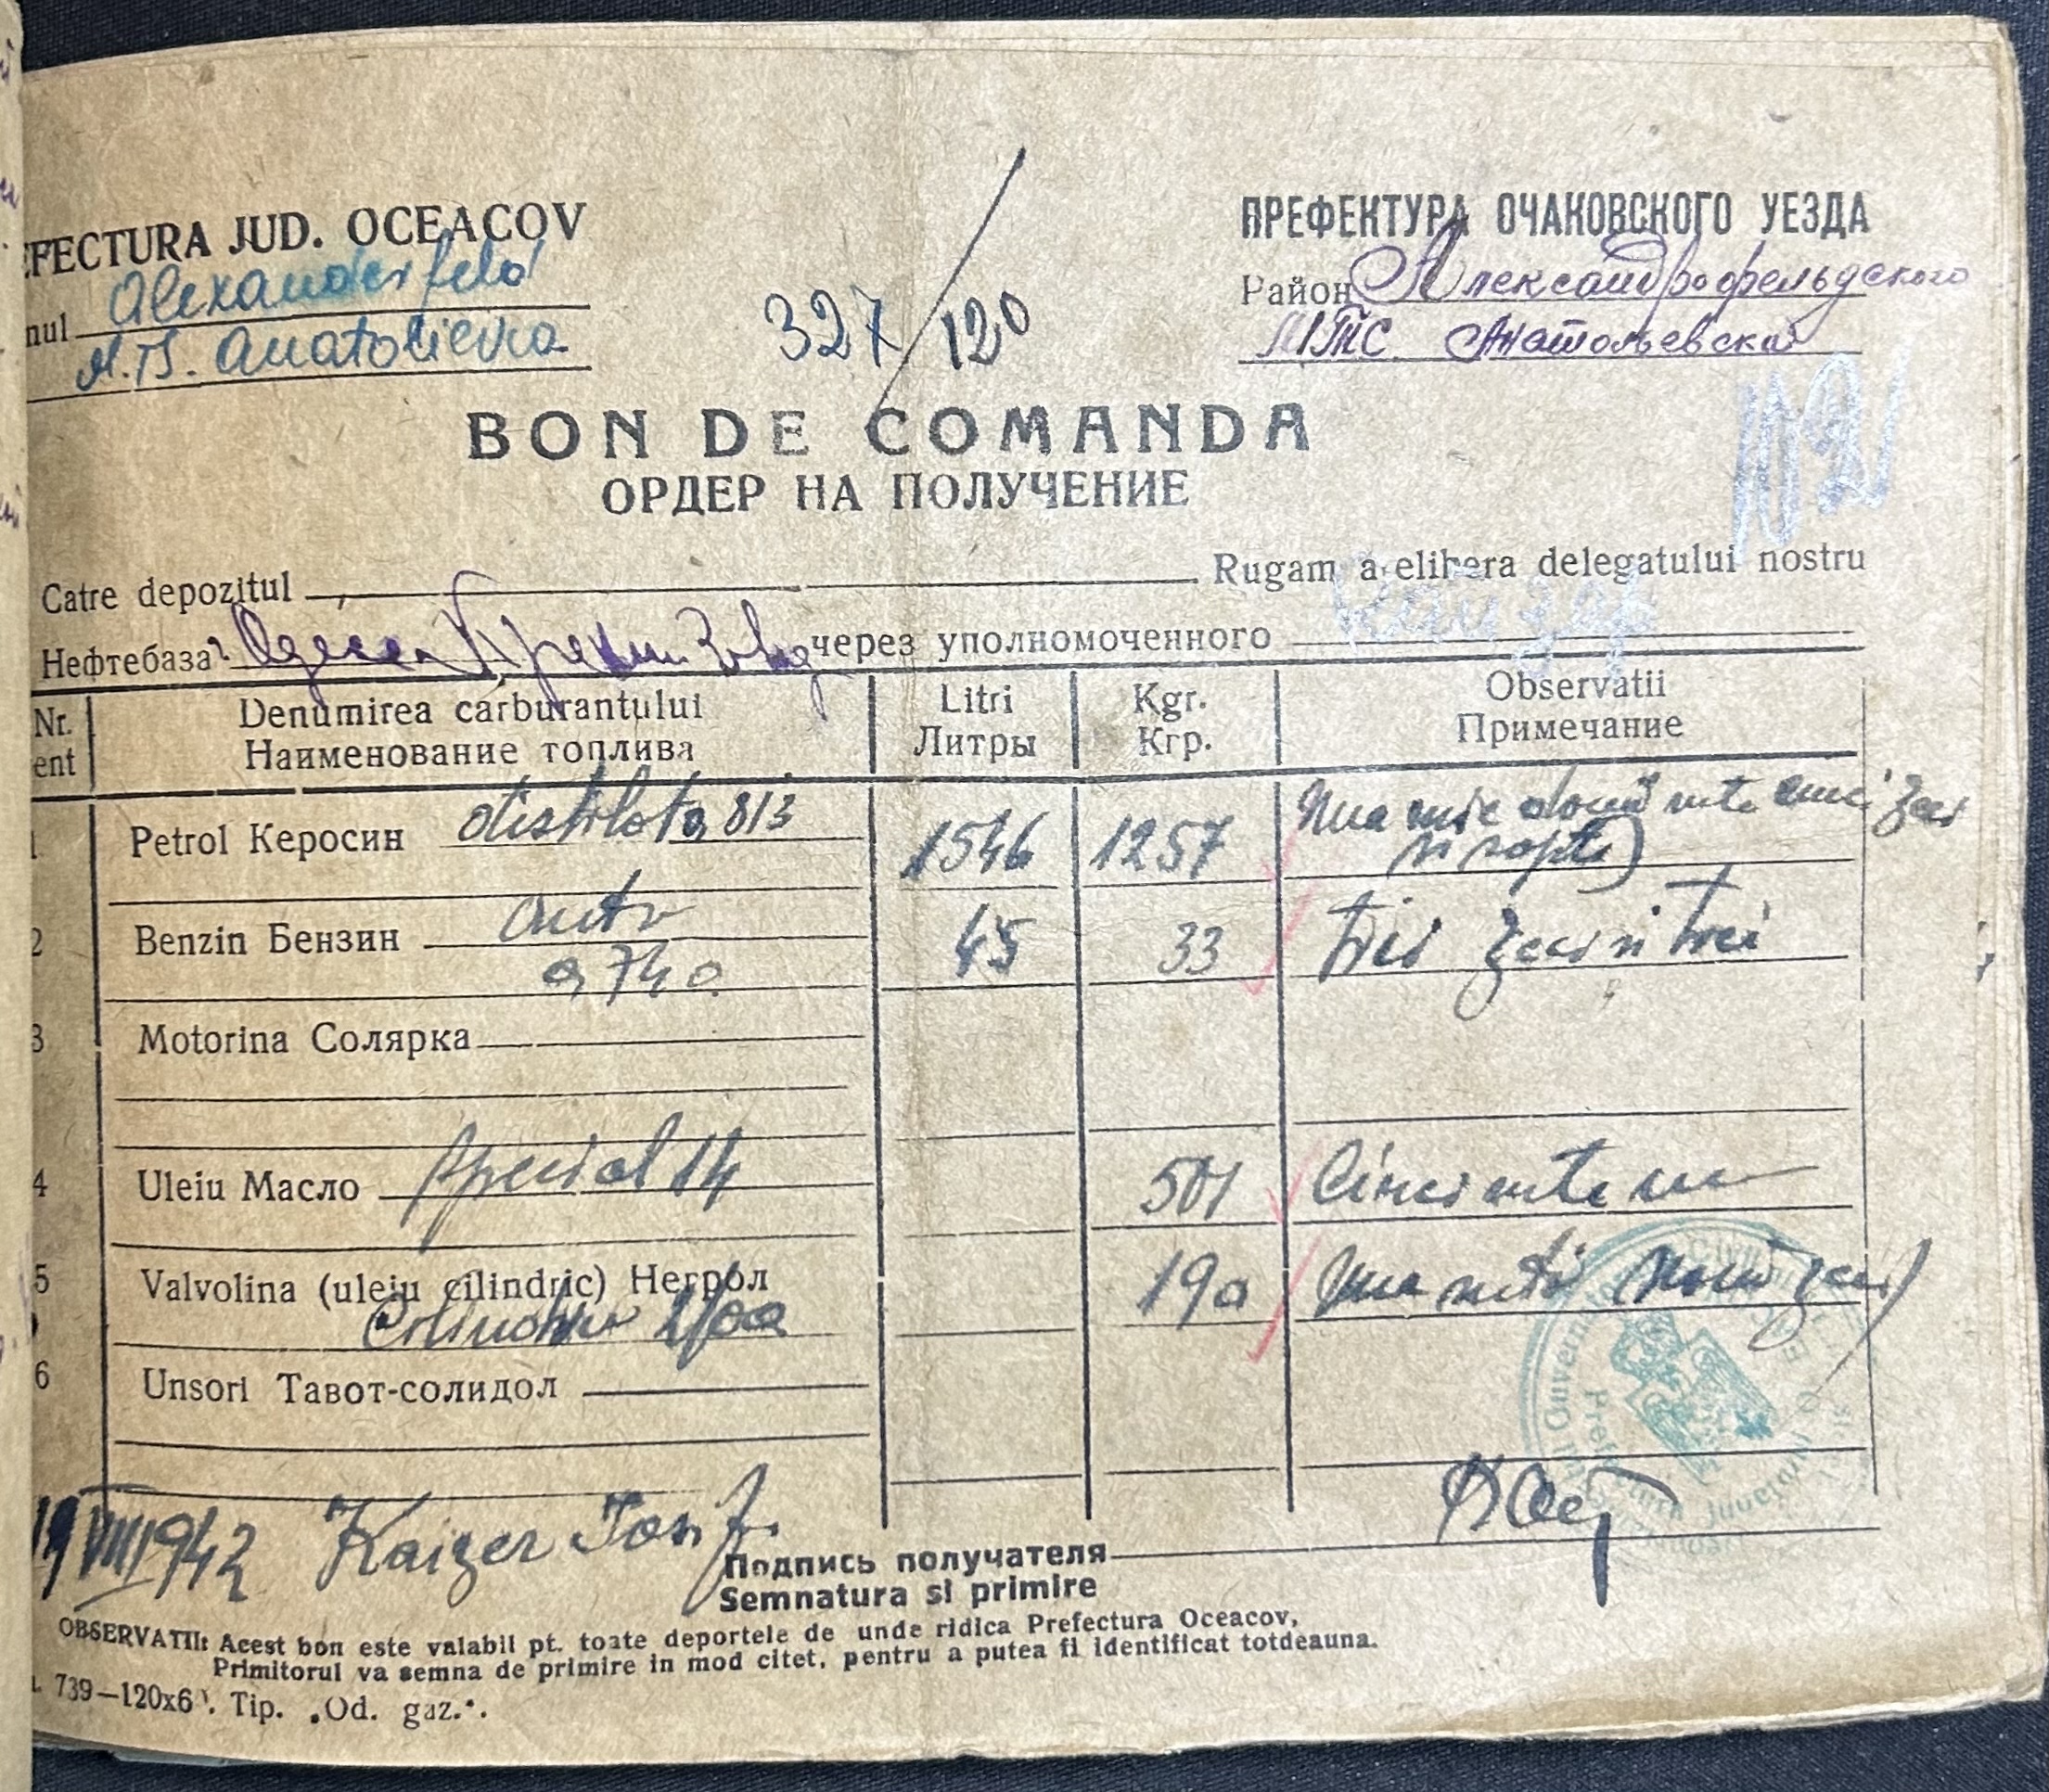 EFECTURA JUD. OCEACOV
nul Alexanderfeld
Anatolievca
327/120
ПРЕФЕКТУРА ОЧАКОВСКОГО УЕЗДА
Район Александрофельдского
МТС Анатольевская
BON DE COMANDA
ОРДЕР НА ПОЛУЧЕНИЕ
Catre depozitul Rugam a elibera delegatului nostru
Нефтебаза г. Одесса через уполномоченного Кайзер
Nr. Denumirea carburantului Litri Kgr. Observatii
ent Наименование топлива Литры Кгр. Примечание
1 Petrol Керосин distilat 0,813 1546 1257 Una mie două sute cinci zeci
si sapte)
2 Benzin Бензин auto 45 33 trei zeci si trei
0,740
3 Motorina Солярка
4 Uleiu Масло special 14 501 Cinci sute un
5 Valvolina (uleiu cilindric) Негрол 190 una sută nouă zeci
6 Unsori Тавот-солидол
19 VIII 1942 Kaizer Iosif.
Подпись получателя
Semnatura si primire
OBSERVATII: Acest bon este valabil pt. toate deportele de unde ridica Prefectura Oceacov,
Primitorul va semna de primire in mod citet, pentru a putea fi identificat totdeauna.
739—120x6 Tip. „Od. gaz.".